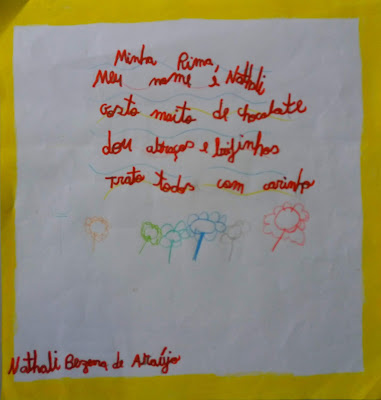 Minha Rima,
Meu nome é Nathali
Gosto muito de chocolate
dou abraços e beijinhos
Trato todos com carinho
Nathali Bezerra de Araújo